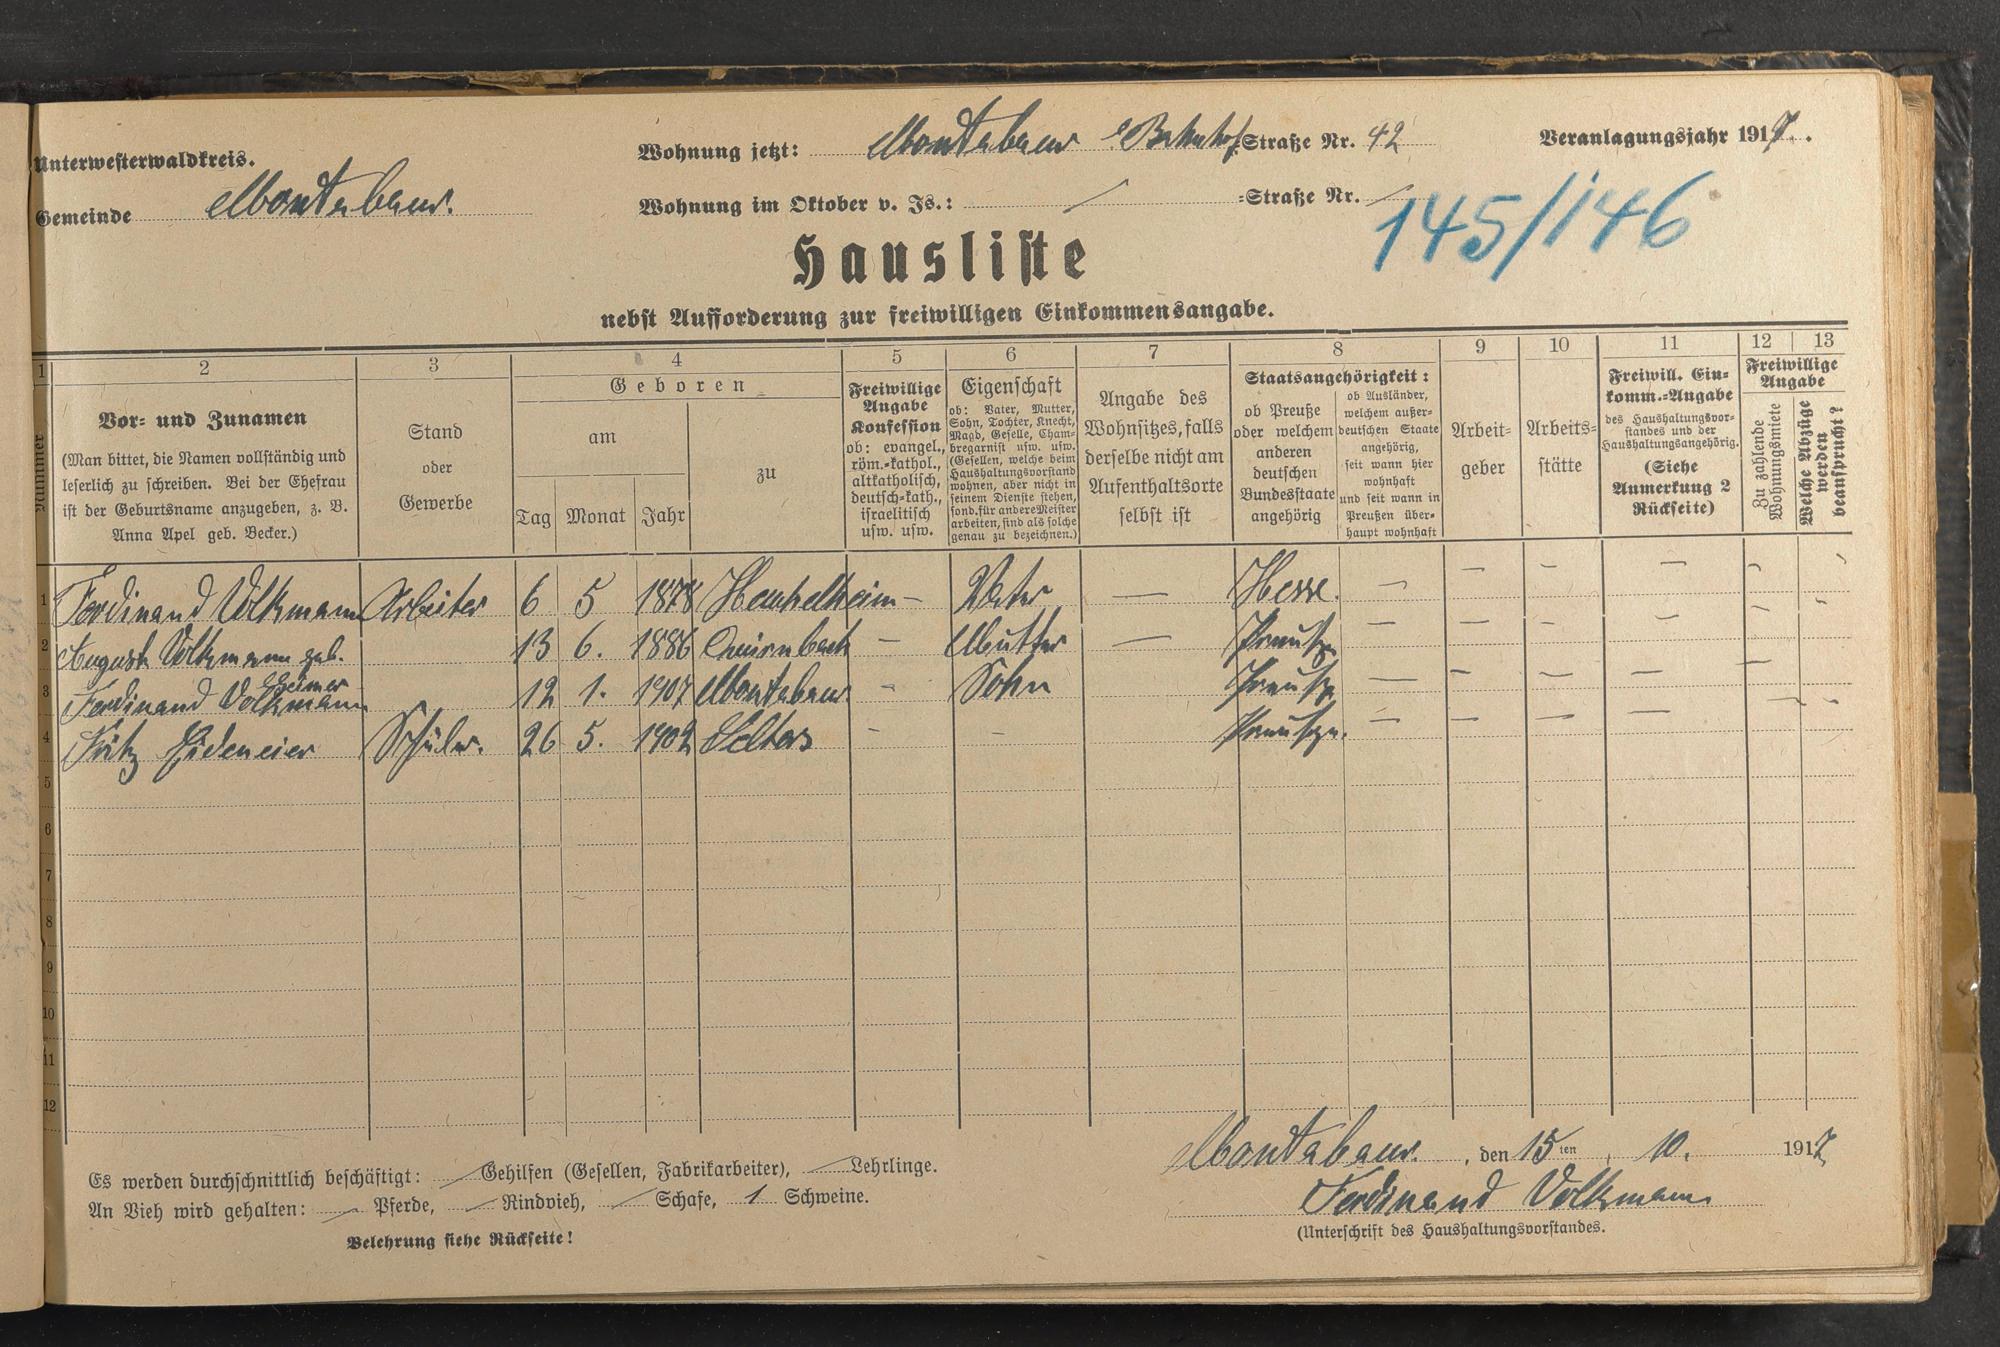 Unterwesterwaldkreis.
Gemeinde Montabaur.
Wohnung jetzt: Montabaur Bahnhof Straße Nr. 42
Wohnung im Oktober v. Js.: / =Straße Nr. /
Veranlagungsjahr 1917.
145/146
Hausliste
nebst Aufforderung zur freiwilligen Einkommensangabe.
1 2 3 4 5 6 7 8 9 10 11 12 13
Nummer
Vor- und Zunamen
(Man bittet, die Namen vollständig und
leserlich zu schreiben. Bei der Ehefrau
ist der Geburtsname anzugeben, z. B.
Anna Apel geb. Becker.)
Stand
oder
Gewerbe
Geboren
am
Tag Monat Jahr
zu
Freiwillige
Angabe
Konfession
ob: evangel.,
röm.-kathol.,
altkatholisch,
deutsch-kath.,
israelitisch
usw. usw.
Eigenschaft
ob: Vater, Mutter,
Sohn, Tochter, Knecht,
Magd, Geselle, Cham-
bregarnist usw. usw.
(Gesellen, welche beim
Haushaltungsvorstand
wohnen, aber nicht in
seinem Dienste stehen,
sond. für andere Meister
arbeiten, sind als solche
genau zu bezeichnen.)
Angabe des
Wohnsitzes, falls
derselbe nicht am
Aufenthaltsorte
selbst ist
Staatsangehörigkeit:
ob Preuße
oder welchem
anderen
deutschen
Bundesstaate
angehörig
ob Ausländer,
welchem außer-
deutschen Staate
angehörig,
seit wann hier
wohnhaft
und seit wann in
Preußen über-
haupt wohnhaft
Arbeit-
geber
Arbeits-
stätte
Freiwill. Ein-
komm.-Angabe
des Haushaltungsvor-
standes und der
Haushaltungsangehörig.
(Siehe
Anmerkung 2
Rückseite)
Freiwillige
Angabe
Zu zahlende
Wohnungsmiete
Welche Abzüge
werden
beansprucht?
1 Ferdinand Volkmann Arbeiter 6 5 1878 Heuchelheim – Vater — Hesse. — — – — – –
2 August Volkmann geb. 13 6. 1886 Quirnbach – Mutter — Preuße — — – — – –
3 Ferdinand Volkmann 12 1. 1907 Montabaur. – Sohn Preuße — — – — –
4 Fritz Eidemeier Schüler. 26 5. 1902 Selters – – Preuße. — — – — – –
5
6
7
8
9
10
11
12
Es werden durchschnittlich beschäftigt: / Gehilfen (Gesellen, Fabrikarbeiter), / Lehrlinge.
An Vieh wird gehalten: / Pferde, / Rindvieh, / Schafe, 1 Schweine.
Belehrung siehe Rückseite!
Montabaur. , den 15ten , 10. 1917
Ferdinand Volkmann
(Unterschrift des Haushaltungsvorstandes.